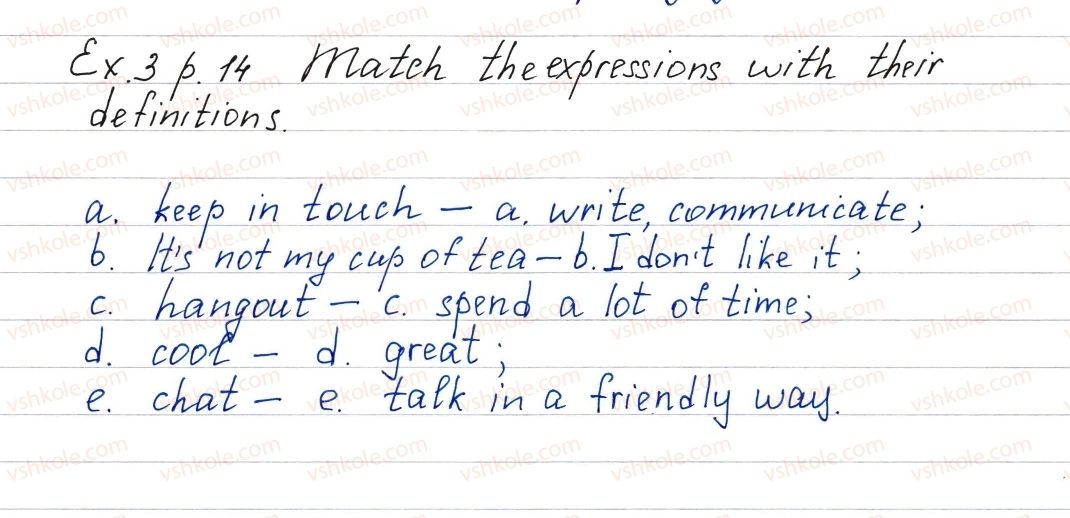 Ex.3 p. 14 Match the expressions with their
definitions.
a. keep in touch – a. write, communicate;
b. It's not my cup of tea – b. I don't like it;
c. hangout – c. spend a lot of time;
d. cool – d. great;
e. chat – e. talk in a friendly way.